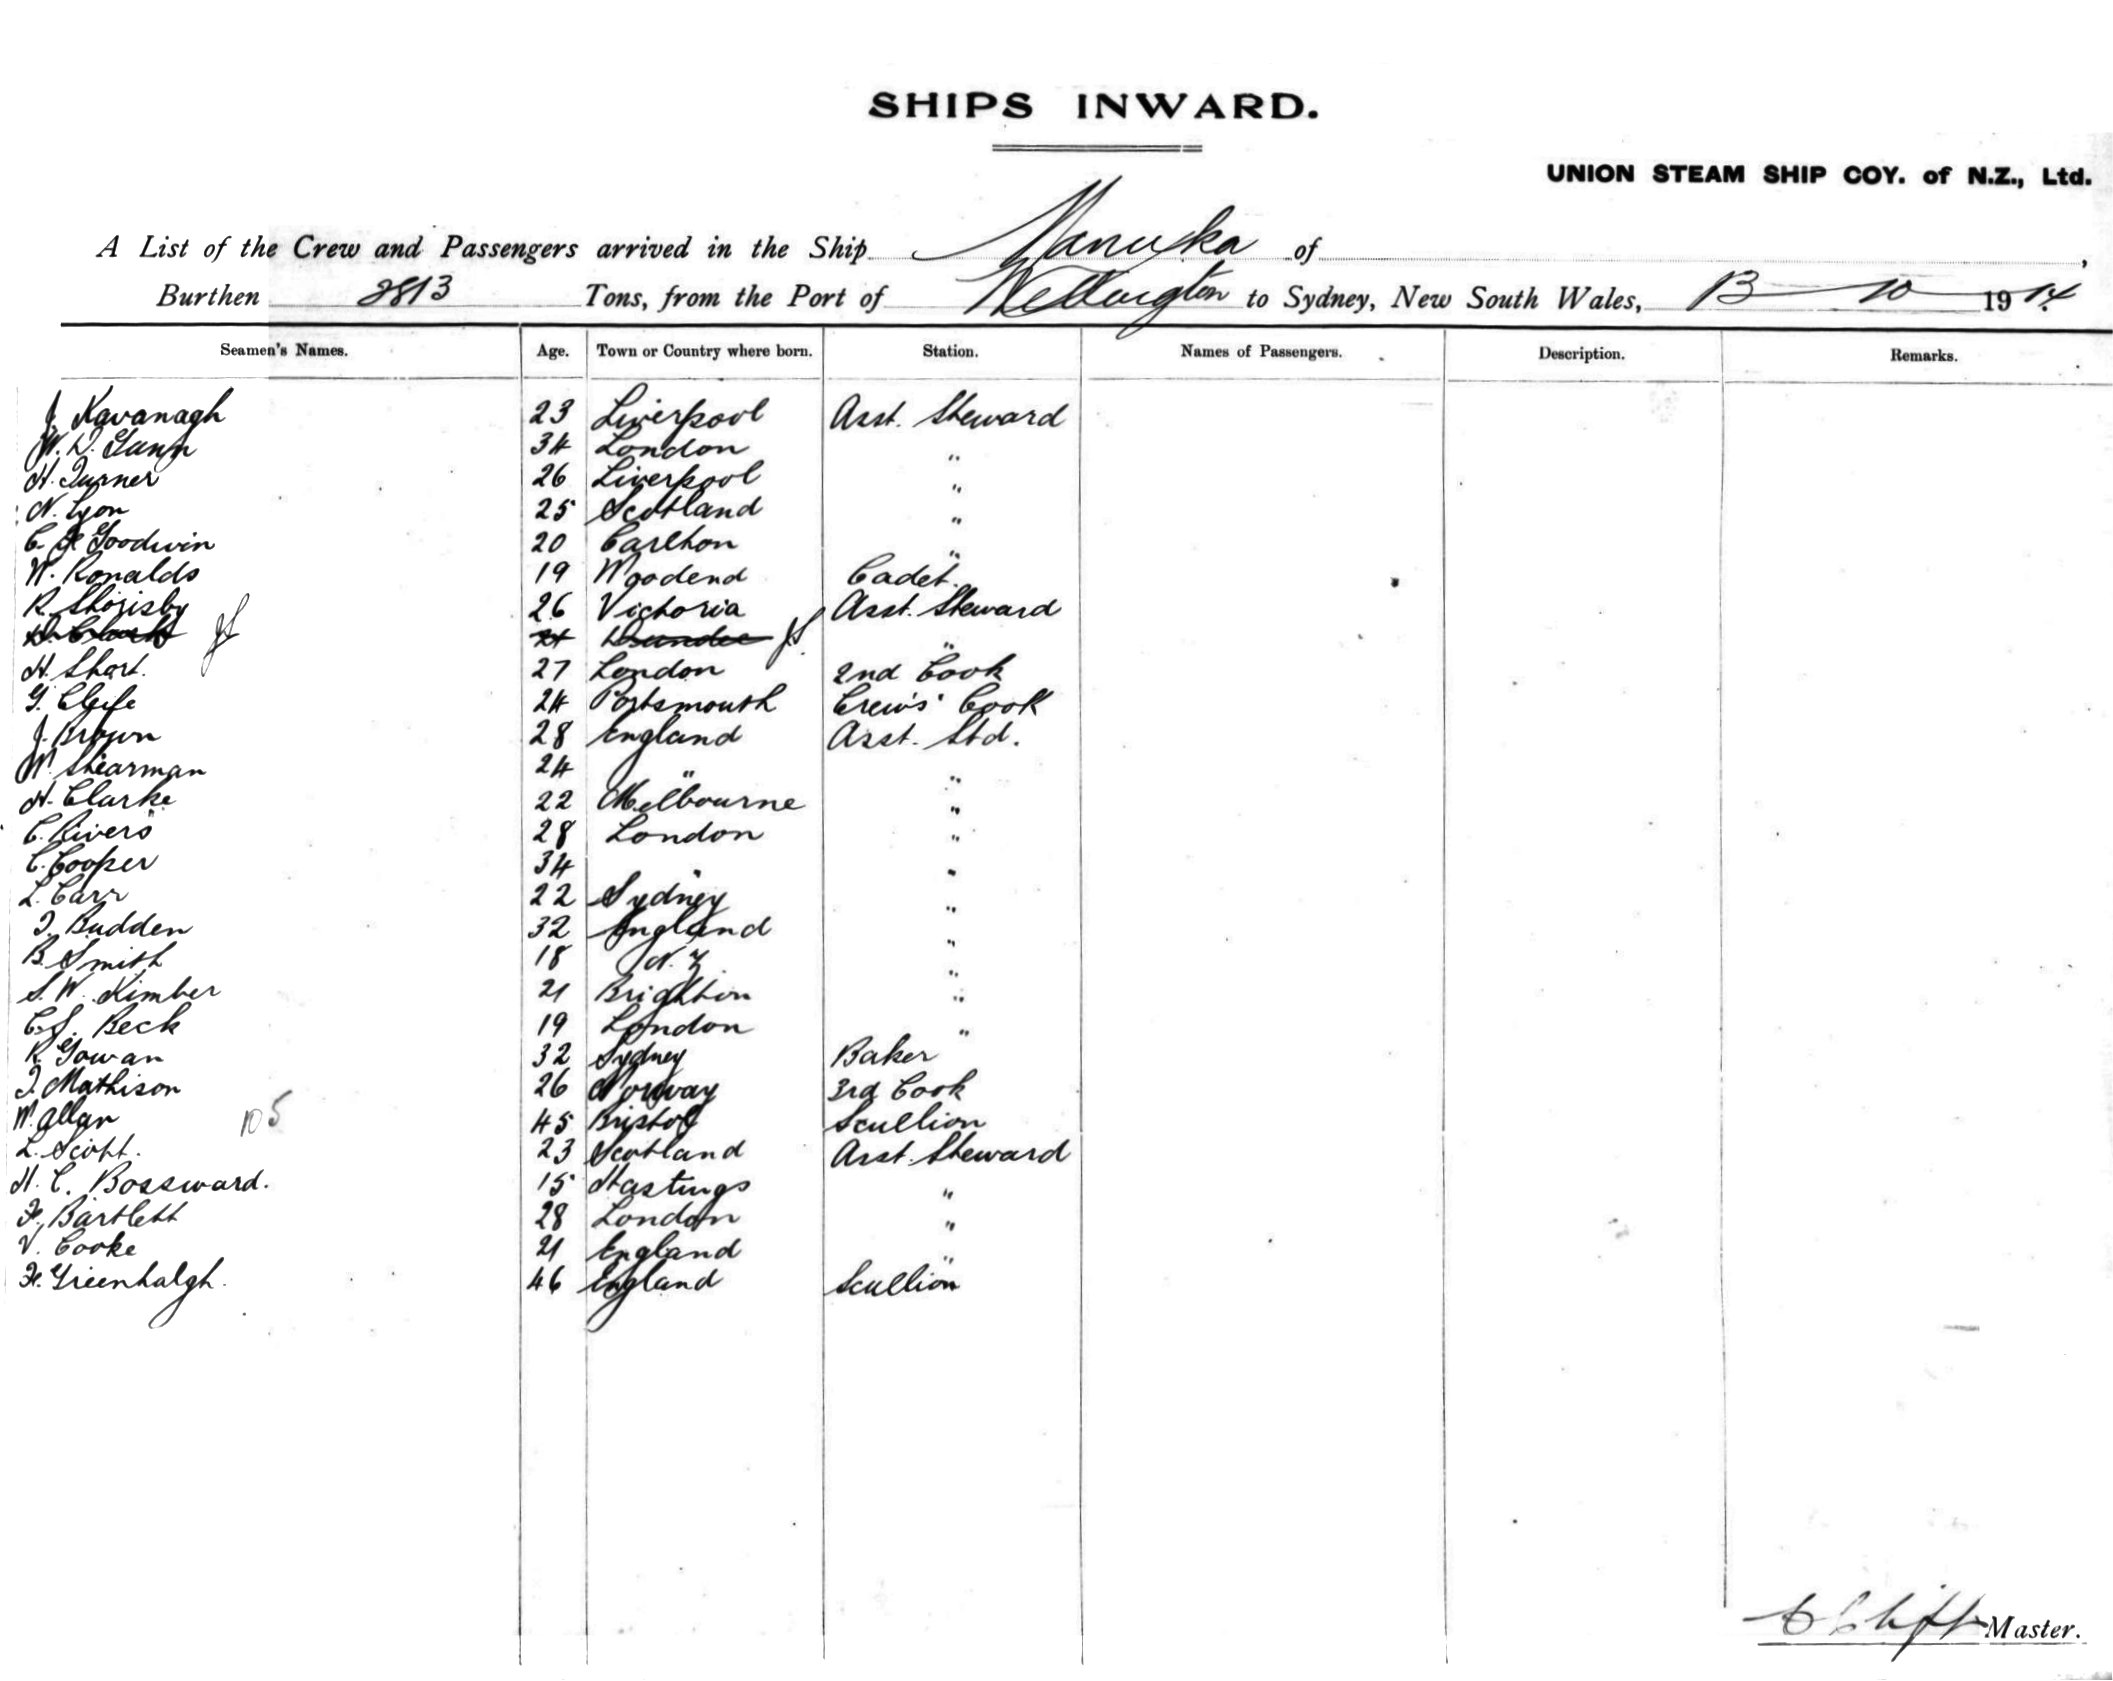 SHIPS INWARD.
UNION STEAM SHIP COY. of N.Z., Ltd.
A List of the Crew and Passengers arrived in the Ship Manuka of ,
Burthen 2813 Tons, from the Port of Wellington to Sydney, New South Wales, 13 - 10 - 1914.
Seamen's Names. Age. Town or Country where born. Station. Names of Passengers. Description. Remarks.
J. Kavanagh 23 Liverpool Asst. Steward
W. D. Gunn 34 London "
H. Turner 26 Liverpool "
N. Lyon 25 Scotland "
C. Goodwin 20 Carlton "
W. Ronalds 19 Woodend Cadet.
R. 26 Victoria Asst. Steward
D. Clark 21 Dundee "
H. Short. 27 London 2nd Cook
G. 24 Portsmouth Crew's Cook
J. Brown 28 England Asst. Std.
W. Shearman 24 " "
H. Clarke 22 Melbourne "
C. Rivers 28 London "
C. Cooper 34 " "
L. Carr 22 Sydney "
T. Budden 32 England "
B. Smith 18 N.Z. "
S. W. Kimber 21 Brighton "
C. S. Beck 19 London "
R. Gowan 32 Sydney Baker
T. Mathison 26 Norway 3rd Cook
W. Allan 105 45 Bristol Scullion
L. Scott. 23 Scotland Asst. Steward
H. C. Bossward. 15 Hastings "
F. Bartlett 28 London "
V. Cooke 21 England "
F. Greenhalgh. 46 England Scullion
Master.